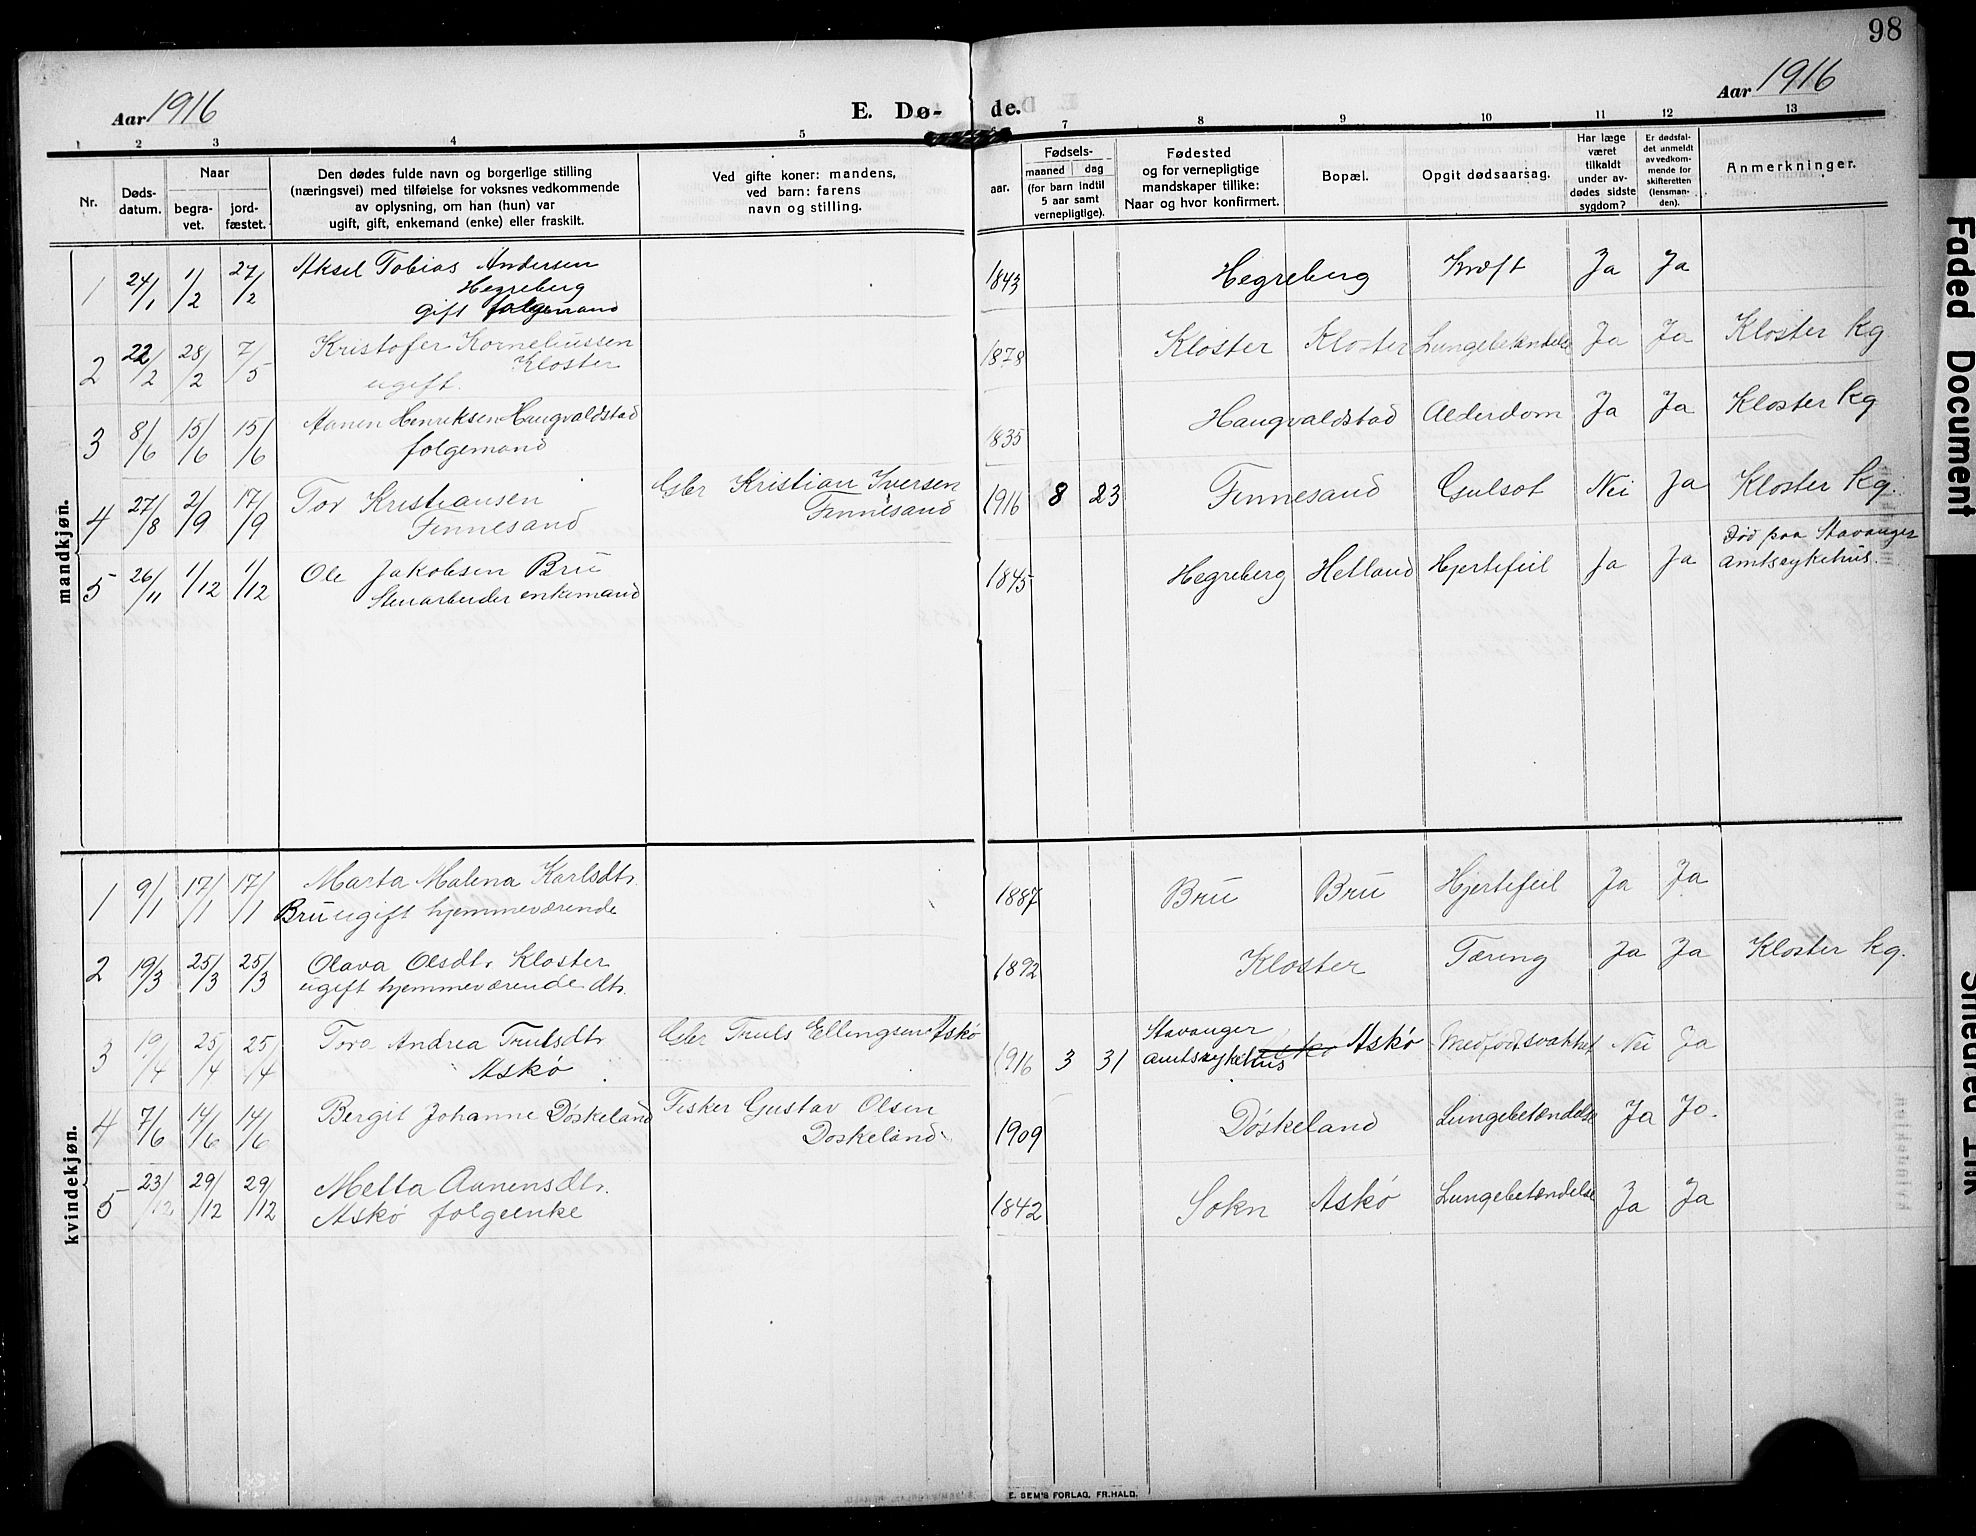 98
Aar 1916
E. Dø- de.
Aar 1916
1 2 3 4 5 7 8 9 10 11 12 13
Nr.
Døds-
datum.
Naar
begra-
vet.
jord-
fæstet.
Den dødes fulde navn og borgerlige stilling
(næringsvei) med tilføielse for voksnes vedkommende
av oplysning, om han (hun) var
ugift, gift, enkemand (enke) eller fraskilt.
Ved gifte koner: mandens,
ved barn: farens
navn og stilling.
Fødsels-
aar.
maaned dag
(for barn indtil
5 aar samt
vernepligtige).
Fødested
og for vernepligtige
mandskaper tillike:
Naar og hvor konfirmert.
Bopæl.
Opgit dødsaarsag.
Har læge
været
tilkaldt
under av-
dødes sidste
sygdom?
Er dødsfal-
det anmeldt
av vedkom-
mende for
skifteretten
(lensman-
den).
Anmerkninger.
mandkjøn.
1 24/1 1/2 27/2 Aksel Tobias Andersen
Hegreberg
gift folgemand
1843 Hegreberg Kræft Ja Ja
2 22/2 28/2 7/5 Kristofer Korneliussen
Kloster
ugift.
1878 Kloster Kloster Lungebetændelse Ja Ja Kloster kg
3 8/6 15/6 15/6 Aanen Henriksen Haugvaldstad
folgemand
1835 Haugvaldstad Alderdom Ja Ja Kloster kg
4 27/8 2/9 17/9 Tor Kristiansen
Finnesand
Gbr Kristian Iversen
Finnesand
1916 8 23 Finnesand Gulsot Nei Ja Kloster kg.
5 26/11 1/12 1/12 Ole Jakobsen Bru
Stenarbeider enkemand
1845 Hegreberg Hetland Hjertefeil Ja Ja
Død paa Stavanger
amtssykehus.
kvindekjøn.
1 9/1 17/1 17/1 Marta Malena Karlsdtr.
Bru ugift hjemmeværende
1887 Bru Bru Hjertefeil Ja Ja
2 19/3 25/3 25/3 Olava Olsdtr. Kloster
ugift hjemmeværende dtr.
1892 Kloster Tæring Ja Ja Kloster kg.
3 19/4 25/4 25/4 Tora Andrea Trulsdtr
Askø
Gbr Truls Ellingsen Askø
1916 3 31 Stavanger
amtssykehus Askø Medfødt svakhet Nei Ja
4 7/6 14/6 14/6 Bergit Johanne Døskeland
Fisker Gustav Olsen
Døskeland.
1909 Døskeland Lungebetændelse Ja Ja.
5 23/12 29/12 29/12 Metta Aanensdtr.
Askø folgeenke
1842 Sokn Askø Lungebetændelse Ja Ja
E. SEM'S FORLAG, FR.HALD.
Faded Document
Smeared Ink